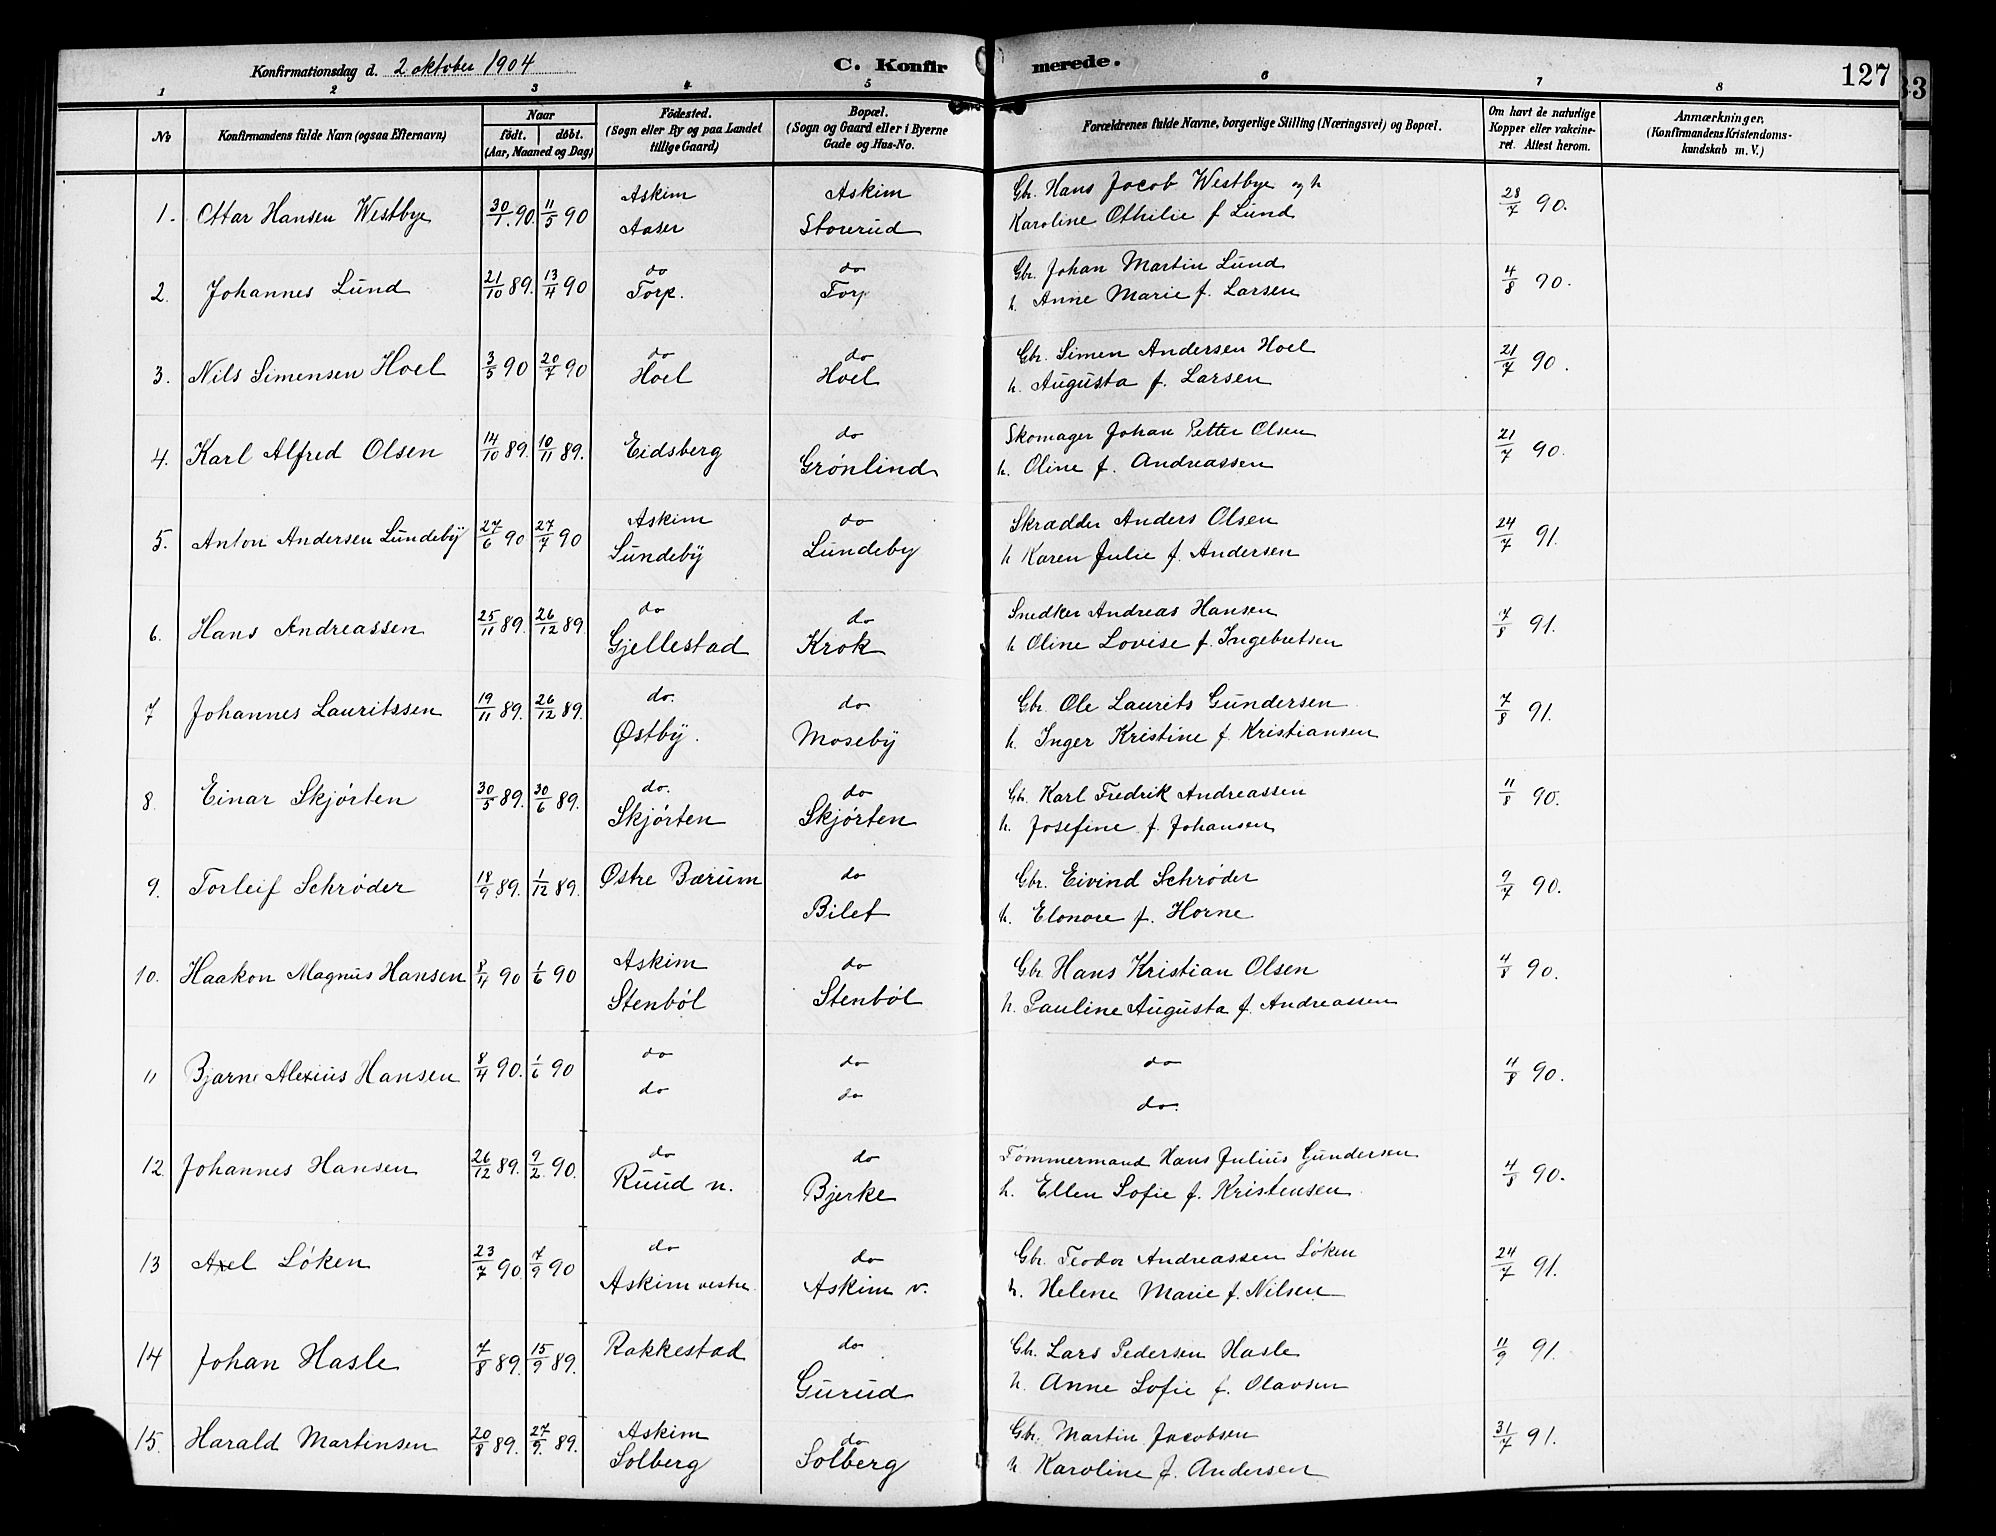 Konfirmationsdag d. 2 oktober 1904 C. Konfirmerede. 127
1 2 3 4 5 6 7 8
No Konfirmandens fulde Navn (ogsaa Efternavn) Naar født. døbt. (Aar, Maaned og Dag) Fødested. (Sogn eller By og paa Landet tillige Gaard) Bopæl. (Sogn og Gaard eller i Byerne Gade og Hus-No. Forældrenes fulde Navne, borgerlige Stilling (Næringsvei) og Bopæl. Om havt de naturlige Kopper eller vakcineret. Attest herom. Anmærkninger. (Konfirmandens Kristendomskundskab m. V.)
Askim Askim Gbr. Hans Jacob Westbye og h
1. Ottar Hansen Westbye 30/1 90. 11/5 90 Aaser Storerud Karoline Othilie f Lund 28/7 90.
do do Gbr. Johan Martin Lund
2. Johannes Lund 21/10 89. 13/4 90 Torp. Torp h. Anne Marie f. Larsen 4/8 90.
do do Gbr. Simen Andersen Hoel
3. Nils Simensen Hoel 3/5 90 20/7 90 Hoel Hoel h. Augusta f. Larsen 21/7 90.
do Skomager Johan Petter Olsen
4. Karl Alfred Olsen 14/10 89. 10/11 89. Eidsberg Grønlind h. Oline f. Andreassen 21/7 90.
Askim do Skrædder Anders Olsen
5. Anton Andersen Lundeby 27/6 90 27/7 90 Lundeby Lundeby h Karen Julie f. Andersen 24/7 91.
do do Snedker Andreas Hansen
6. Hans Andreassen 25/11 89. 26/12 89. Gjellestad Krok h Oline Lovise f. Ingebretsen 7/8 91.
do. do Gbr. Ole Laurits Gundersen
7 Johannes Lauritssen 19/11 89. 26/12 89. Østby. Moseby h. Inger Kristine f. Kristiansen 7/8 91.
do. do Gbr. Karl Fredrik Andreassen
8. Einar Skjørten 30/5 89. 30/6 89. Skjørten Skjørten h. Josefine f. Johansen 11/8 90.
Østre Bærum do Gbr. Eivind Schrøder
9. Torleif Schrøder 18/9 89. 1/12 89. Bilet h. Elonore f. Horne 9/7 90.
Askim do Gbr Hans Kristian Olsen
10. Haakon Magnus Hansen 8/4 90 1/6 90 Stenbøl Stenbøl h. Pauline Augusta f. Andreassen 4/8 90.
do do do
11 Bjarne Alexius Hansen 8/4 90. 1/6 90 do do do. 4/8 90.
do do Tømmermand Hans Julius Gundersen
12. Johannes Hansen 26/12 89. 9/2 90. Ruud n. Bjerke h. Ellen Sofie f. Kristensen 4/8 90.
do do Gbr. Teodor Andreassen Løken
13 Axel Løken 23/7 90. 7/9 90 Askim vestre Askim v. h. Helene Marie f. Nilsen 24/7 91.
Rakkestad do Gbr. Lars Pedersen Hasle
14 Johan Hasle 7/8 89. 15/9 89. Gurud h. Anne Sofie f. Olavsen 11/9 91.
Askim do Gbr. Martin Jacobsen
15. Harald Martinsen 20/8 89. 27/9. 89. Solberg Solberg h Karoline f. Andersen 31/7 91.